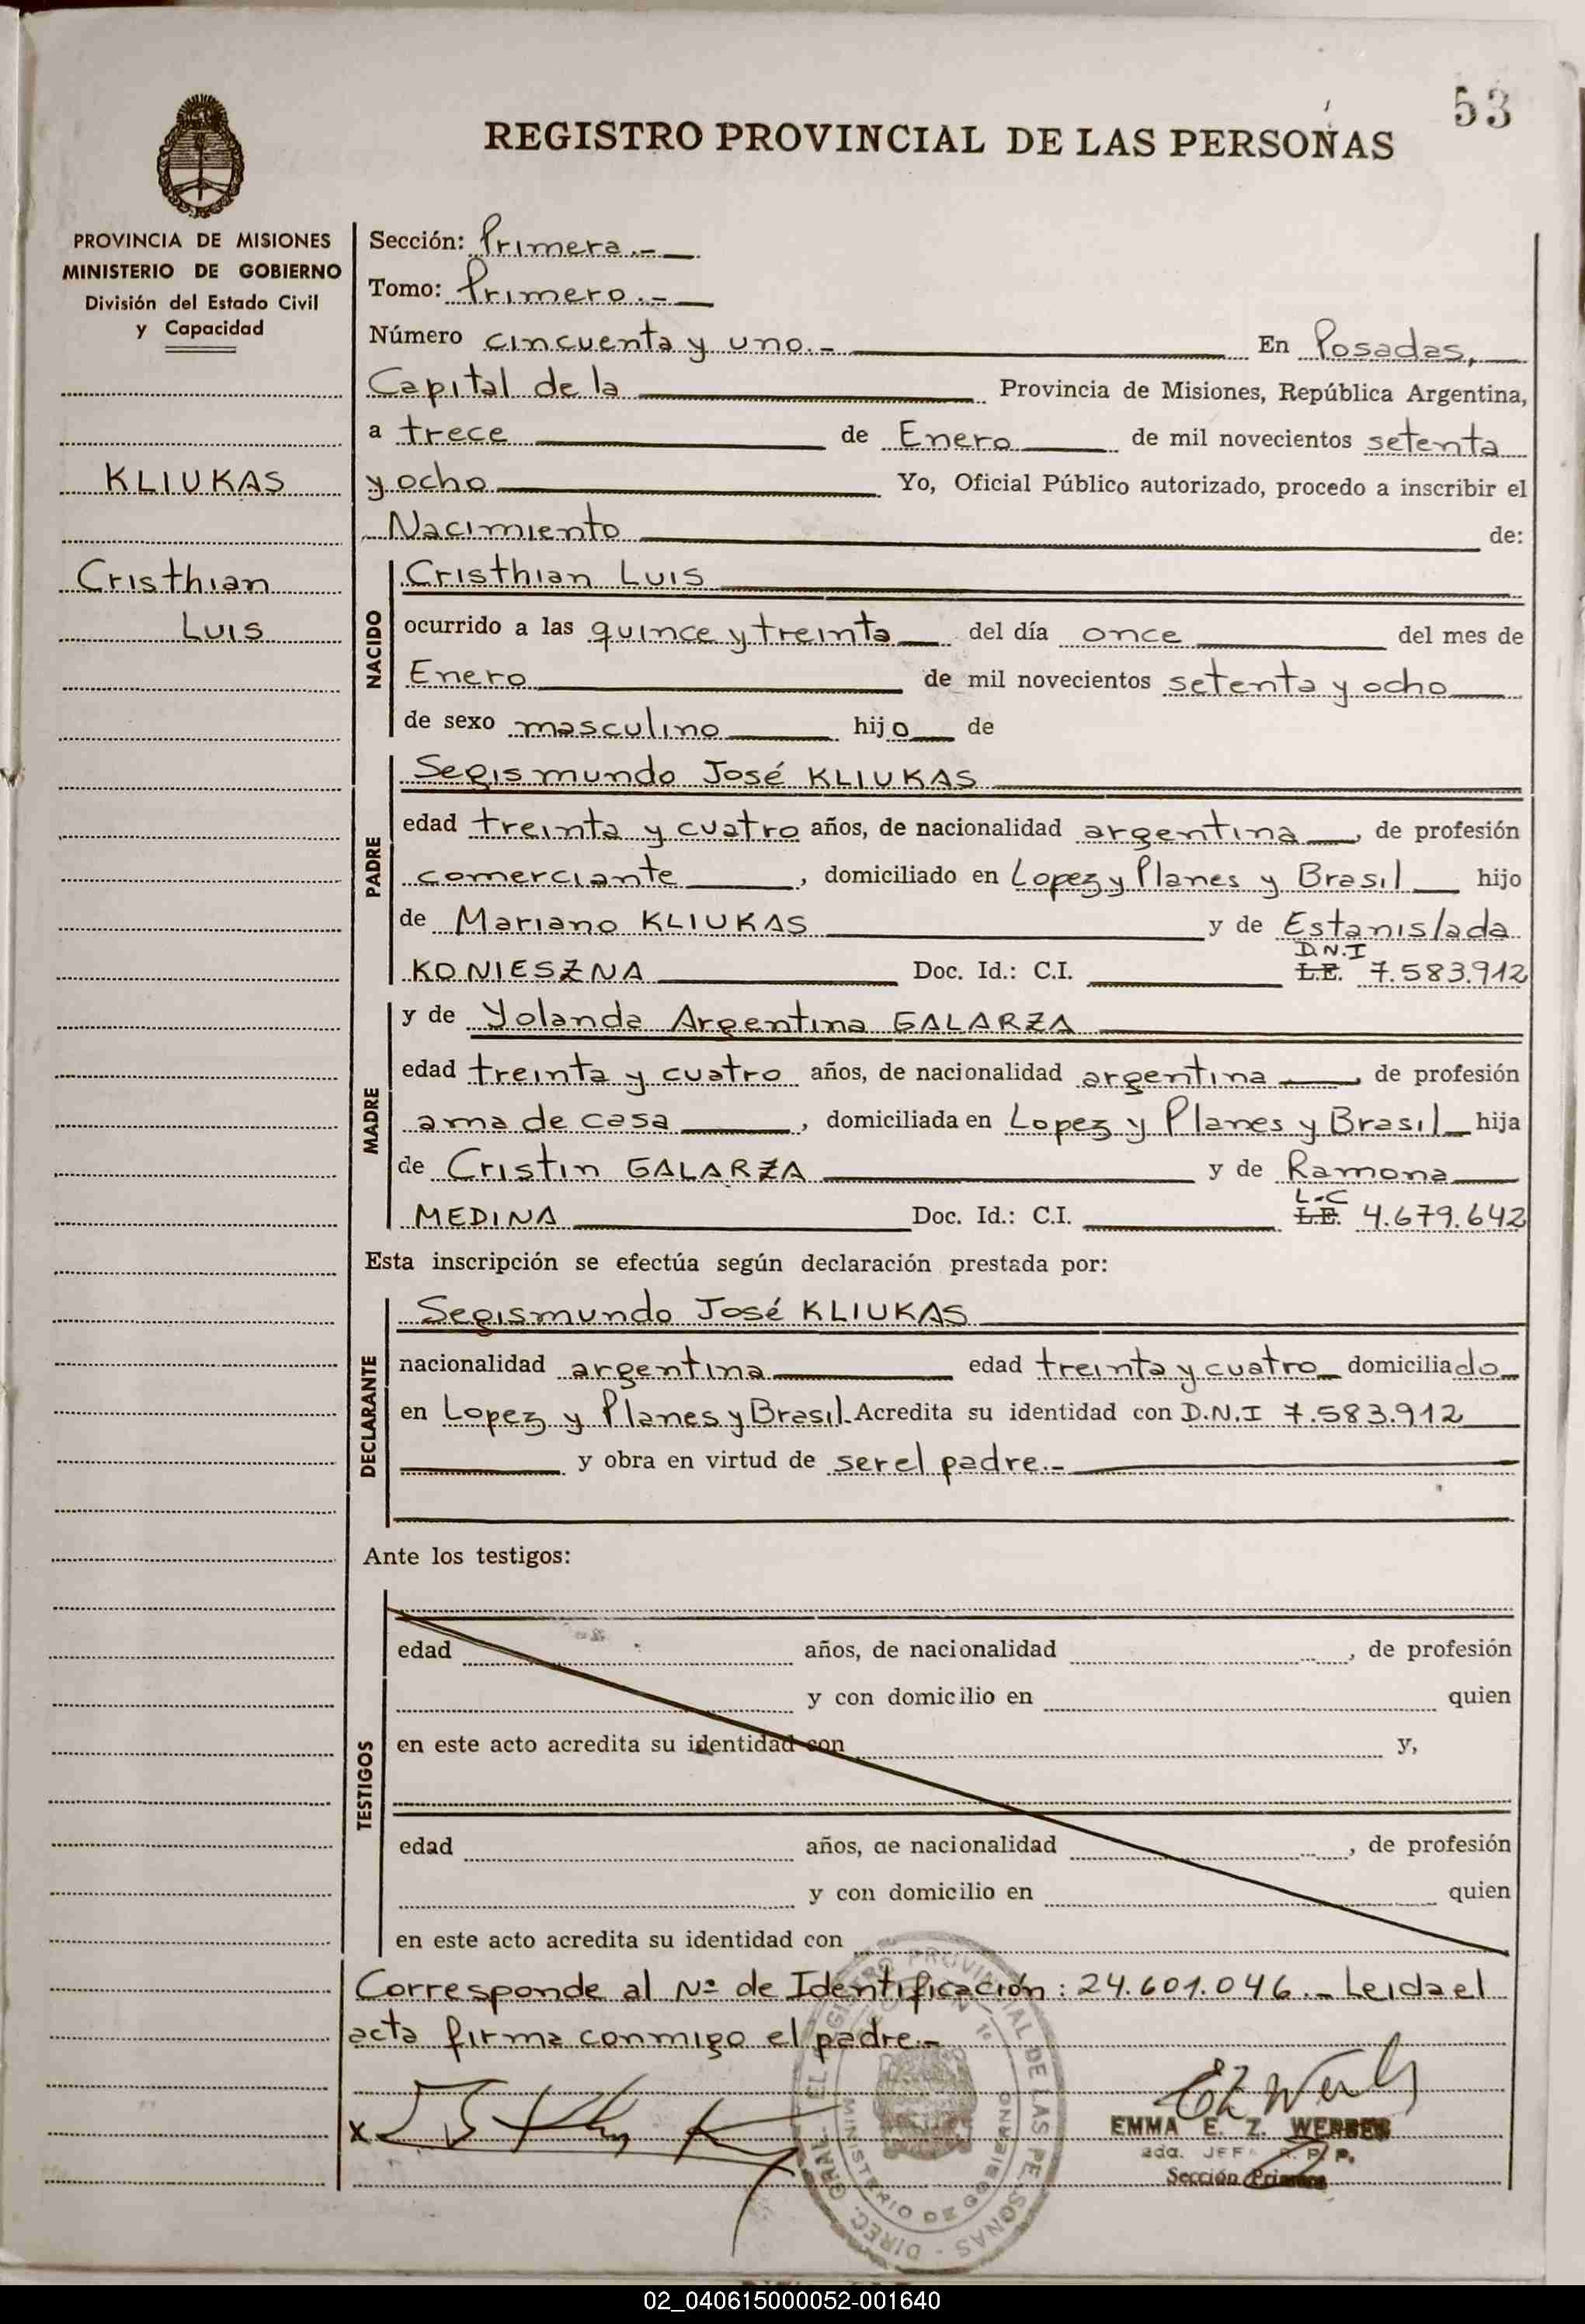 53
REGISTRO PROVINCIAL DE LAS PERSONAS
PROVINCIA DE MISIONES
MINISTERIO DE GOBIERNO
División del Estado Civil
y Capacidad
KLIUKAS
Cristhian
Luis
Sección: Primera.-
Tomo: Primero.-
Número cincuenta y uno.- En Posadas,
Capital de la Provincia de Misiones, República Argentina,
a trece de Enero de mil novecientos setenta
y ocho Yo, Oficial Público autorizado, procedo a inscribir el
Nacimiento de:
NACIDO
Cristhian Luis
ocurrido a las quince y treinta del día once del mes de
Enero de mil novecientos setenta y ocho
de sexo masculino hijo de
PADRE
Segismundo José KLIUKAS
edad treinta y cuatro años, de nacionalidad argentina, de profesión
comerciante, domiciliado en Lopez y Planes y Brasil hijo
de Mariano KLIUKAS y de Estanislada
D.N.I
KONIESZNA Doc. Id.: C.I. L.E. 7.583.912
MADRE
y de Yolanda Argentina GALARZA
edad treinta y cuatro años, de nacionalidad argentina, de profesión
ama de casa, domiciliada en Lopez y Planes y Brasil hija
de Cristin GALARZA y de Ramona
L.C
MEDINA Doc. Id.: C.I. L.E. 4.679.642
Esta inscripción se efectúa según declaración prestada por:
DECLARANTE
Segismundo José KLIUKAS
nacionalidad argentina edad treinta y cuatro domiciliado
en Lopez y Planes y Brasil. Acredita su identidad con D.N.I 7.583.912
y obra en virtud de ser el padre.-
Ante los testigos:
TESTIGOS
edad años, de nacionalidad , de profesión
y con domicilio en quien
en este acto acredita su identidad con y,
edad años, de nacionalidad , de profesión
y con domicilio en quien
en este acto acredita su identidad con
Corresponde al Nº de Identificación: 24.601.046.- Leida el
acta firma conmigo el padre.-
x
EMMA E. Z. WERBER
2da. JEFA R. P. P.
Sección Primera
DIREC. GRAL. DEL REGISTRO PROVINCIAL DE LAS PERSONAS
MINISTERIO DE GOBIERNO
02_040615000052-001640